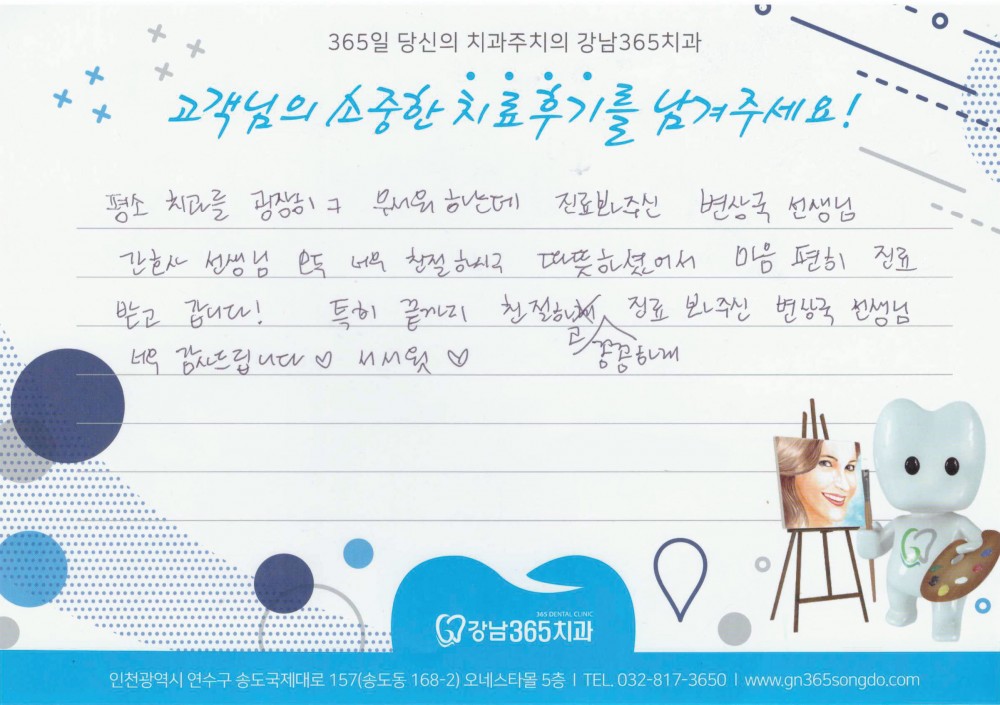 365일 당신의 치과주치의 강남365치과
고객님의 소중한 치료후기를 남겨주세요!
평소 치과를 굉장히 무서워 하는데 진료봐주신 변상국 선생님
간호사 선생님 모두 너무 친절하시고 따뜻하셨어서 마음 편히 진료
받고 갑니다! 특히 끝까지 친절하고 꼼꼼하게 진료 봐주신 변상국 선생님
너무 감사드립니다 ♡
365 DENTAL CLINIC
강남365치과
인천광역시 연수구 송도국제대로 157(송도동 168-2) 오네스타몰 5층 I TEL. 032-817-3650 I www.gn365songdo.com